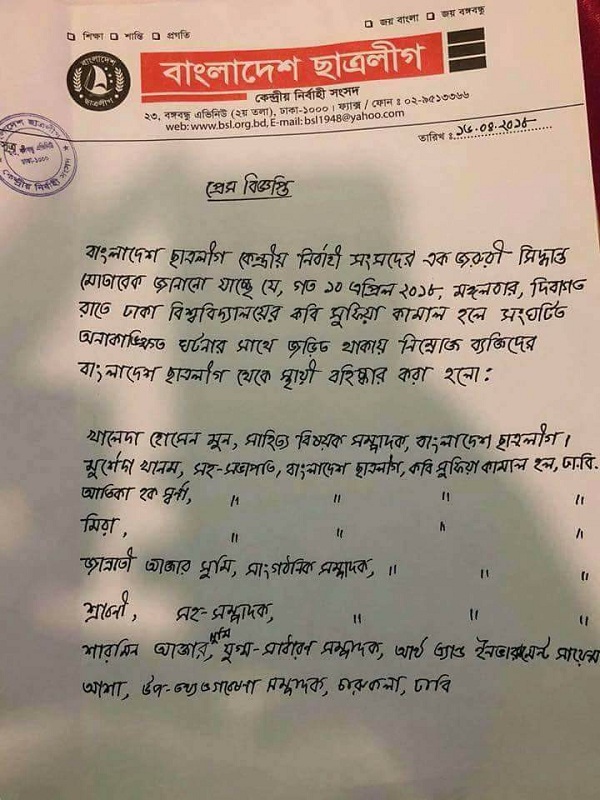 শিক্ষা শান্তি প্রগতি
জয় বাংলা জয় বঙ্গবন্ধু
বাংলাদেশ ছাত্রলীগ
বাংলাদেশ ছাত্রলীগ
কেন্দ্রীয় নির্বাহী সংসদ
২৩, বঙ্গবন্ধু এভিনিউ (২য় তলা), ঢাকা-১০০০। ফ্যাক্স / ফোন : ০২-৯৫১৩৩৬৬
web: www.bsl.org.bd, E-mail: bsl1948@yahoo.com
তারিখ : ১৬.০৪.২০১৮
ঢাকা-১০০০
কেন্দ্রীয় নির্বাহী সংসদ
প্রেস বিজ্ঞপ্তি
বাংলাদেশ ছাত্রলীগ কেন্দ্রীয় নির্বাহী সংসদের এক জরুরী সিদ্ধান্ত
মোতাবেক জানানো যাচ্ছে যে, গত ১০ এপ্রিল ২০১৮, মঙ্গলবার, দিবাগত
রাতে ঢাকা বিশ্ববিদ্যালয়ের কবি সুফিয়া কামাল হলে সংঘটিত
অনাকাঙ্ক্ষিত ঘটনার সাথে জড়িত থাকায় নিম্নোক্ত ব্যক্তিদের
বাংলাদেশ ছাত্রলীগ থেকে স্থায়ী বহিষ্কার করা হলো :
খালেদা হোসেন মুন, সাহিত্য বিষয়ক সম্পাদক, বাংলাদেশ ছাত্রলীগ।
মুর্শেদা খানম, সহ-সভাপতি, বাংলাদেশ ছাত্রলীগ, কবি সুফিয়া কামাল হল, ঢা.বি.
আতিকা হক স্বর্ণা, " " " "
মিরা, " " " "
জান্নাতী আক্তার সুমি, সাংগঠনিক সম্পাদক, " " "
শ্রাবণী, সহ-সম্পাদক, " " "
শারমিন আক্তার সুমি, যুগ্ম-সাধারণ সম্পাদক, আর্থ এ্যান্ড ইনভায়রমেন্ট সায়েন্স
আশা, উপ-তথ্য ও গবেষণা সম্পাদক, চারুকলা, ঢাবি